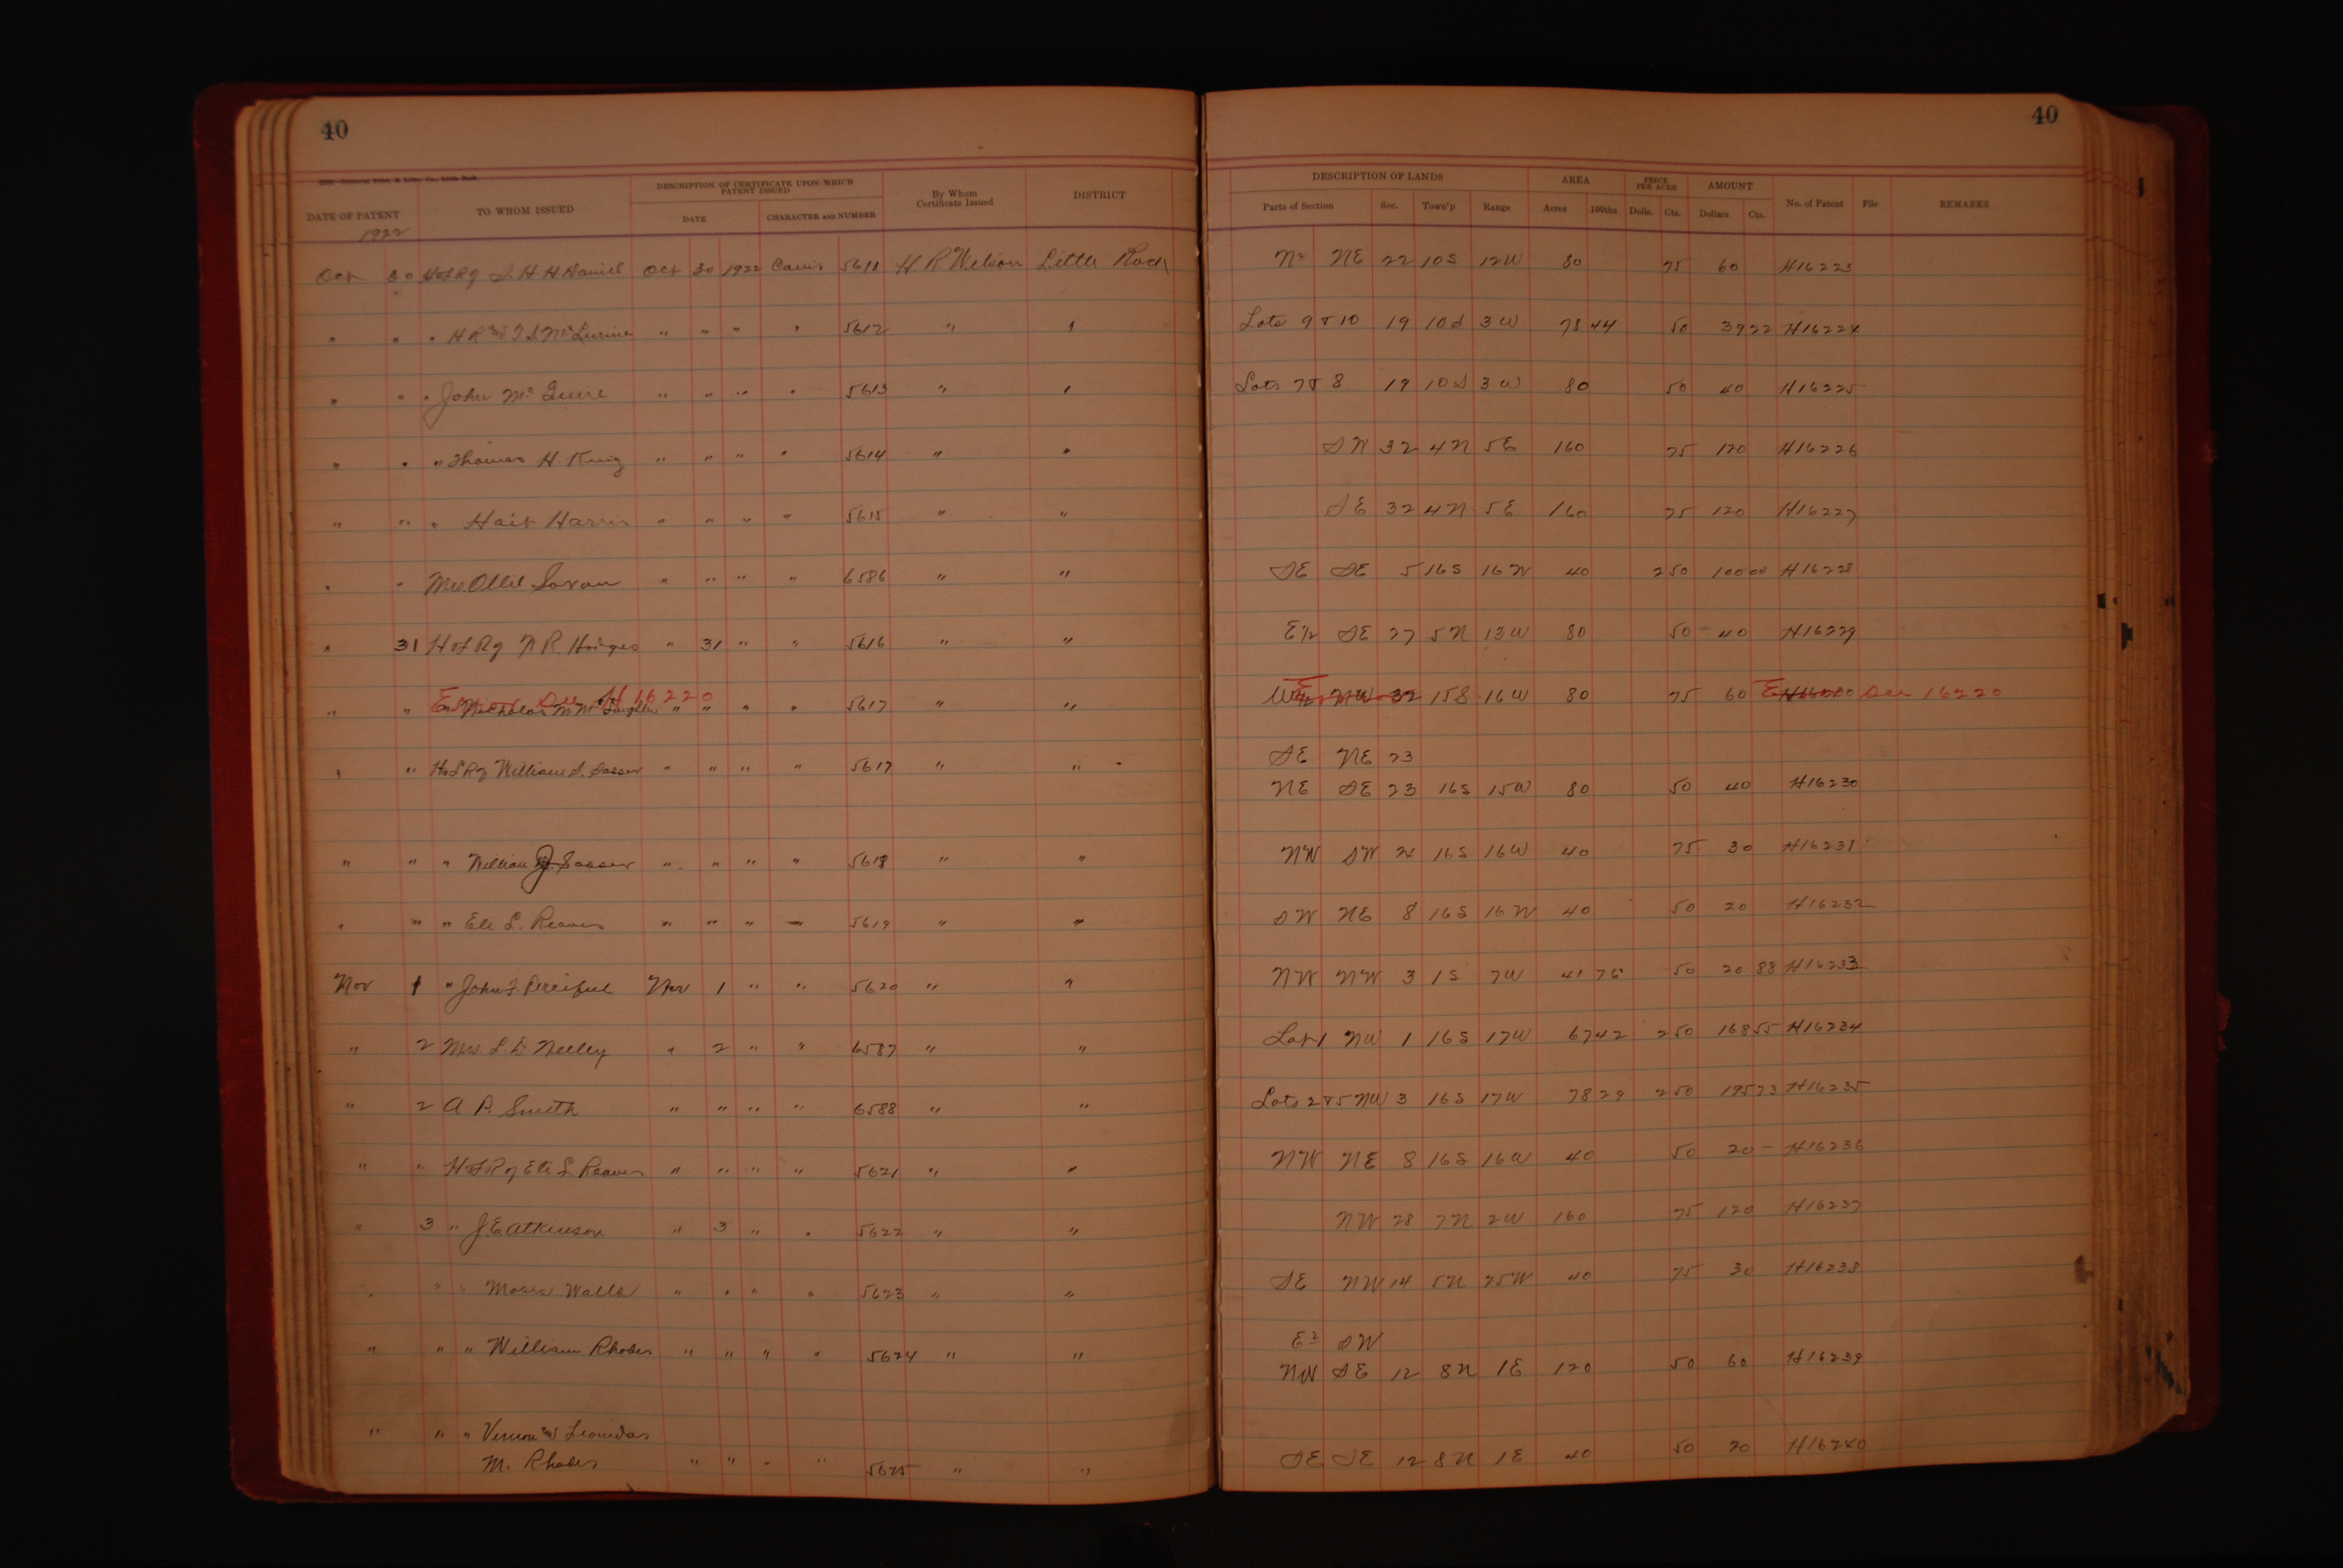 40
40
DATE OF PATENT
TO WHOM ISSUED
DESCRIPTION OF CERTIFICATE UPON WHICH PATENT ISSUED
DATE
CHARACTER AND NUMBER
By Whom Certificate Issued
DISTRICT
DESCRIPTION OF LANDS
Parts of Section
Sec.
Town'p
Range
AREA
Acres
100ths
PRICE PER ACRE
Dolls.
Cts.
AMOUNT
Dollars
Cts.
No. of Patent
File
REMARKS
1922
Oct 30 H of Rg S. H H Daniel Oct 30 1922 5611 H R Wilson Little Rock N² NE 22 10S 12W 80 75 60 H16223
" " " H R and " " " " 5612 " " Lots 9 & 10 19 10S 3W 78 44 50 39 22 H16224
" " " John McGuire " " " " 5613 " " Lots 7 & 8 19 10S 3W 80 50 40 H16225
" " " Thomas H. King " " " " 5614 " " SW 32 4N 5E 160 75 120 H16226
" " " Harris " " " " 5615 " " SE 32 4N 5E 160 75 120 H16227
" " Mrs. Ollie " " " " 6586 " " SE SE 5 16S 16W 40 2 50 100 00 H16228
" 31 H of Rg N R. Hodges " 31 " " 5616 " " E½ SE 27 5N 13W 80 50 40 H16229
Error See H 16220
" " " Nicholas M McLaughlin " " " " 5617 " " W½ NW 32 15S 16W 80 75 60 Error See 16220
" " H of Rg William S. Sasser " " " " 5617 " " SE NE 23
NE SE 23 16S 15W 80 50 40 H16230
" " " William J. Sasser " " " " 5618 " " NW SW 24 16S 16W 40 75 30 H16231
" " " Eli L. Reaves " " " " 5619 " " SW NE 8 16S 16W 40 50 20 H16232
Nov 1 " John F. Perciful Nov 1 " " 5620 " " NW NW 3 1S 7W 41 75 50 20 88 H16233
" 2 Mrs. L. D. Neeley " 2 " " 6587 " " Lot 1 NW 1 16S 17W 67 42 2 50 168 55 H16234
" 2 A P. Smith " " " " 6588 " " Lots 2 & 5 NW 3 16S 17W 78 29 2 50 195 73 H16235
" " H of Rg Eli L. Reaves " " " " 5621 " " NW NE 8 16S 16W 40 50 20 – H16236
" 3 " J. E Atkinson " 3 " " 5622 " " NW 28 7N 2W 160 75 120 H16237
" " " Moses Walls " " " " 5623 " " SE NW 14 5N 25W 40 75 30 H16238
" " " William Rhodes " " " " 5624 " " E² SW
NW SE 12 8N 1E 120 50 60 H16239
" " " Vernon and Leonidas
M. Rhodes " " " " 5625 " " SE SE 12 8N 1E 40 50 20 H16240